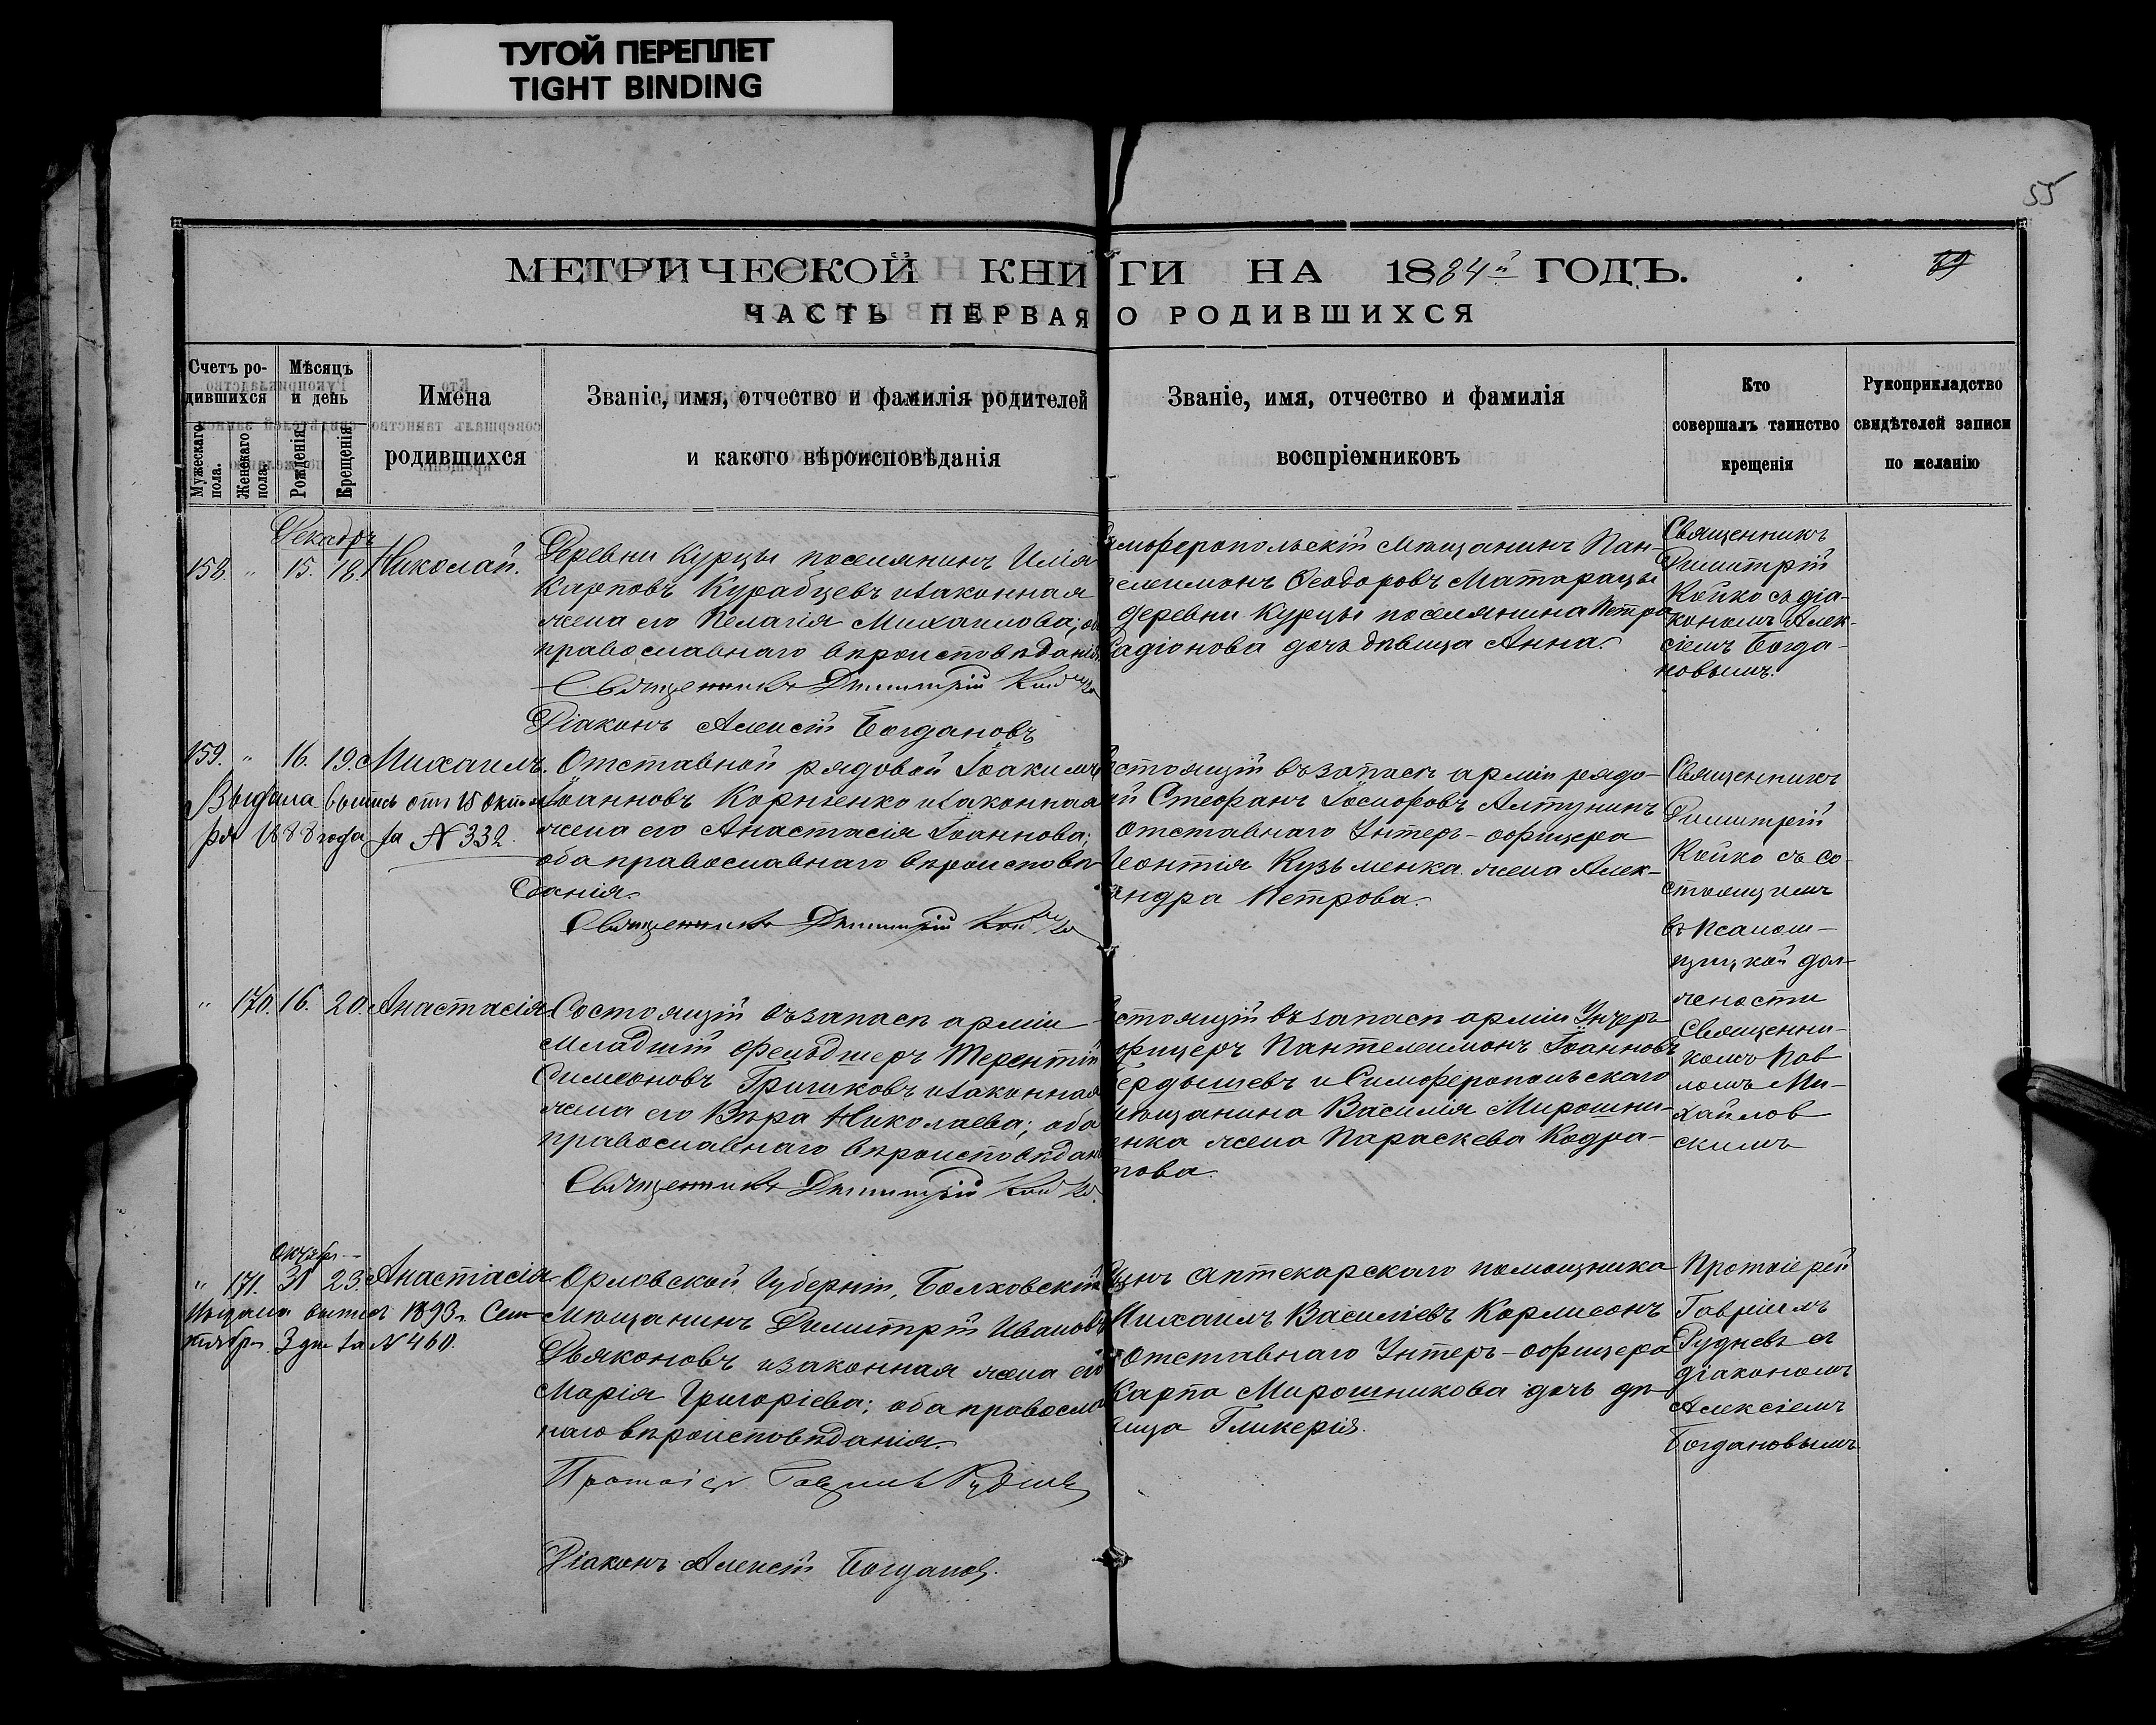 ТУГОЙ ПЕРЕПЛЕТ
TIGHT BINDING
55
МЕТРИЧЕСКОЙ КНИГИ НА 1884й ГОДЪ.
69
ЧАСТЬ ПЕРВАЯ О РОДИВШИХСЯ
Счетъ родившихся
Мужескаго пола.
Женскаго пола.
Мѣсяцъ и день
Рожденія
Крещенія
Имена родившихся
Званіе, имя, отчество и фамилія родителей
и какого вѣроисповѣданія
Званіе, имя, отчество и фамилія
воспріемниковъ
Кто
совершалъ таинство
крещенія
Рукоприкладство
свидѣтелей записи
по желанію
Декабрь
158. " 15. 18. Николай.
Деревни Курцы поселянинъ Илія
Карповъ Курабцевъ и законная
жена его Пелагія Михаилова; об
православнаго вѣроисповѣданія
Священникъ Димитрій Койко
Діаконъ Алексій Богдановъ
имферопольскій мѣщанинъ Пан-
телеимонъ Ѳеодоровъ Матарацы
деревни Курцы поселянина Петра
Радіонова дочь дѣвица Анна.
Священникъ
Димитрій
Койко съ діа-
кономъ Алек-
сіемъ Богда-
новымъ.
159. " 16. 19. Михаилъ.
Выдана выпись отъ 15 октяб
ря 1888 года за № 332.
Отставной рядовой Іоакимъ
Іоанновъ Корніенко и законная
жена его Анастасія Іоаннова;
оба православнаго вѣроисповѣ
данія.
Священникъ Димитрій Койко
стоящій въ запасѣ арміи рядо-
й Стефанъ Іосифовъ Алтунинъ
отставнаго Унтеръ-офицера
Леонтія Кузьменка жена Алек-
андра Петрова.
Священникъ
Димитрій
Койко съ со-
стоящимъ
въ псалом-
щицкой дол-
жности
Священни-
комъ Пав
ломъ Ми-
хайлов
скимъ
" 170. 16. 20. Анастасія
Состоящій въ запасѣ арміи
младшій фельдшеръ Терентій
Симеоновъ Гришковъ и законная
жена его Вѣра Николаева; оба
православнаго вѣроисповѣдан
Священникъ Димитрій Койко.
стоящій въ запасѣ арміи Унтеръ
офицеръ Пантелеимонъ Іоанновъ
Бердышевъ и Симферопольскаго
мѣщанина Василія Мирошни-
енка жена Параскева Кодра-
това.
Октябр
" 171. 31 23. Анастасія
Выдана выпись 1893 г. Сен
тября 3 дня за № 460.
Орловской Губерніи, Болховскій
мѣщанинъ Димитрій Ивановъ
Дьяконовъ и законная жена его
Марія Григоріева; оба правосла
наго вѣроисповѣданія.
Протоіер. Гавріилъ Рудневъ
Діаконъ Алексій Богданов.
аптекарскаго помощника
Михаилъ Василіевъ Карлисонъ
отставнаго Унтеръ-офицера
Карпа Мирошникова дочь дѣ-
вица Гликерія.
Протоіерей
Гавріилъ
Рудневъ съ
діакономъ
Алексіемъ
Богдановымъ